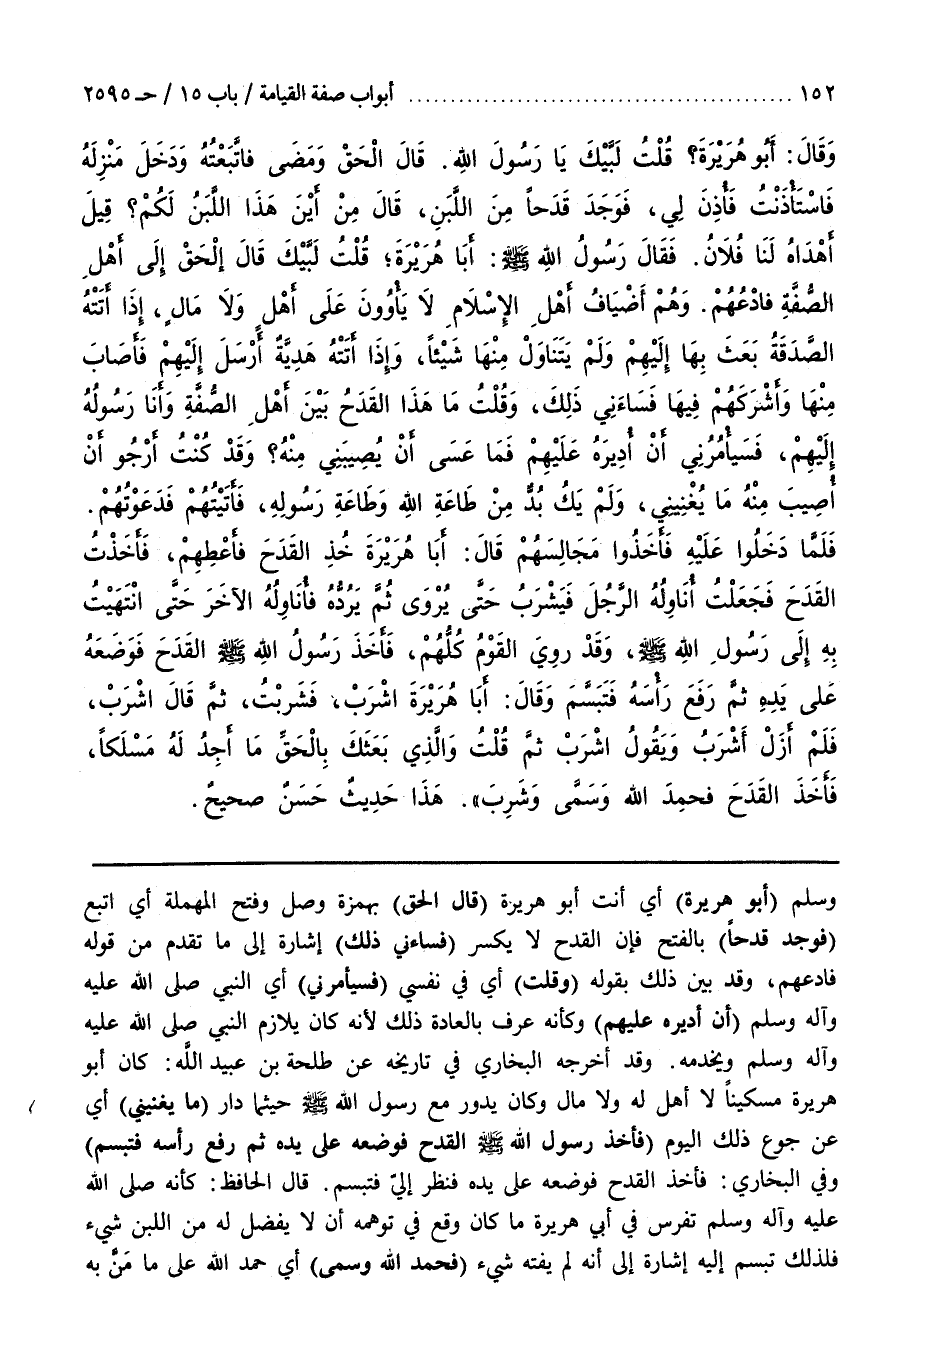 ١٥٢ ............................................ أبواب صفة القيامة / باب ١٥ / حـ ٢٥٩٥
وَقَالَ: أَبُو هُرَيْرَةَ؟ قُلْتُ لَبَّيْكَ يَا رَسُولَ اللهِ. قَالَ الْحَقْ وَمَضَى فاتَّبَعْتُهُ وَدَخَلَ مَنْزِلَهُ
فَاسْتَأْذَنْتُ فَأَذِنَ لِي، فَوَجَدَ قَدَحاً مِنَ اللَّبَنِ، قَالَ مِنْ أَيْنَ هَذَا اللَّبَنُ لَكُمْ؟ قِيلَ
أَهْدَاهُ لَنَا فُلَانُ. فَقَالَ رَسُولُ اللهِ ﷺ: أَبَا هُرَيْرَةَ؛ قُلْتُ لَبَّيْكَ قَالَ إلْحَقْ إِلَى أَهْلِ
الصُّفَّةِ فادْعُهُمْ. وَهُمْ أَضْيَافُ أَهْلِ الإِسْلَامِ لَا يَأْوُونَ عَلَى أَهْلٍ وَلَا مَالٍ، إِذَا أَتَتْهُ
الصَّدَقَةُ بَعَثَ بِهَا إِلَيْهِمْ وَلَمْ يَتَنَاوَلْ مِنْهَا شَيْئاً، وَإِذَا أَتَتْهُ هَدِيَّةٌ أَرْسَلَ إِلَيْهِمْ فَأَصَابَ
مِنْهَا وَأَشْرَكَهُمْ فِيهَا فَسَاءَنِي ذَلِكَ، وَقُلْتُ مَا هَذَا القَدَحُ بَيْنَ أَهْلِ الصُّفَّةِ وَأَنَا رَسُولُهُ
إِلَيْهِمْ، فَسَيَأْمُرُنِي أَنْ أُدِيرَهُ عَلَيْهِمْ فَمَا عَسَى أَنْ يُصِيبَنِي مِنْهُ؟ وَقَدْ كُنْتُ أَرْجُو أَنْ
أُصِيبَ مِنْهُ مَا يُغْنِينِي، وَلَمْ يَكُ بُدٌّ مِنْ طَاعَةِ اللهِ وَطَاعَةِ رَسُولِهِ، فَأَتَيْتُهُمْ فَدَعَوْتُهُمْ.
فَلَمَّا دَخَلُوا عَلَيْهِ فَأَخَذُوا مَجَالِسَهُمْ قَالَ: أَبَا هُرَيْرَةَ خُذِ القَدَحَ فأَعْطِهِمْ، فَأَخَذْتُ
القَدَحَ فَجَعَلْتُ أُنَاوِلُهُ الرَّجُلَ فَيَشْرَبُ حَتَّى يُرْوَى ثُمَّ يَرُدُّهُ فأُنَاوِلُهُ الآخَرَ حَتَّى انْتَهَيْتُ
بِهِ إِلَى رَسُولِ اللهِ ﷺ، وَقَدْ روِيَ القَوْمُ كُلُّهُمْ، فَأَخَذَ رَسُولُ اللهِ ﷺ القَدَحَ فَوَضَعَهُ
عَلى يَدِهِ ثمَّ رَفَعَ رَأْسَهُ فَتَبَسَّمَ وَقَالَ: أَبَا هُرَيْرَةَ اشْرَبْ، فَشَرِبْتُ، ثمَّ قَالَ اشْرَبْ،
فَلَمْ أَزَلْ أَشْرَبُ وَيَقُولُ اشْرَبْ ثمَّ قُلْتُ وَالَّذِي بَعَثَكَ بِالْحَقِّ مَا أَجِدُ لَهُ مَسْلَكاً،
فَأَخَذَ القَدَحَ فحمِدَ الله وَسَمَّى وَشَرِبَ». هَذَا حَدِيثٌ حَسَنٌ صحيحٌ.
وسلم (أبو هريرة) أي أنت أبو هريرة (قال الحق) بهمزة وصل وفتح المهملة أي اتبع
(فوجد قدحاً) بالفتح فإن القدح لا يكسر (فساءني ذلك) إشارة إلى ما تقدم من قوله
فادعهم، وقد بين ذلك بقوله (وقلت) أي في نفسي (فسيأمرني) أي النبي صلى الله عليه
وآله وسلم (أن أديره عليهم) وكأنه عرف بالعادة ذلك لأنه كان يلازم النبي صلى الله عليه
وآله وسلم ويخدمه. وقد أخرجه البخاري في تاريخه عن طلحة بن عبيد اللَّه: كان أبو
هريرة مسكيناً لا أهل له ولا مال وكان يدور مع رسول الله ﷺ حيثما دار (ما يغنيني) أي
عن جوع ذلك اليوم (فأخذ رسول الله ﷺ القدح فوضعه على يده ثم رفع رأسه فتبسم)
وفي البخاري: فأخذ القدح فوضعه على يده فنظر إليّ فتبسم. قال الحافظ: كأنه صلى الله
عليه وآله وسلم تفرس في أبي هريرة ما كان وقع في توهمه أن لا يفضل له من اللبن شيء
فلذلك تبسم إليه إشارة إلى أنه لم يفته شيء (فحمد الله وسمى) أي حمد الله على ما مَنَّ به